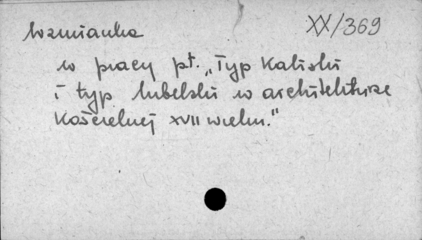 Wzmianka
XX/369
w pracy pt. „Typ Kaliski
i typ lubelski w architekturze
Kościelnej XVII wieku."